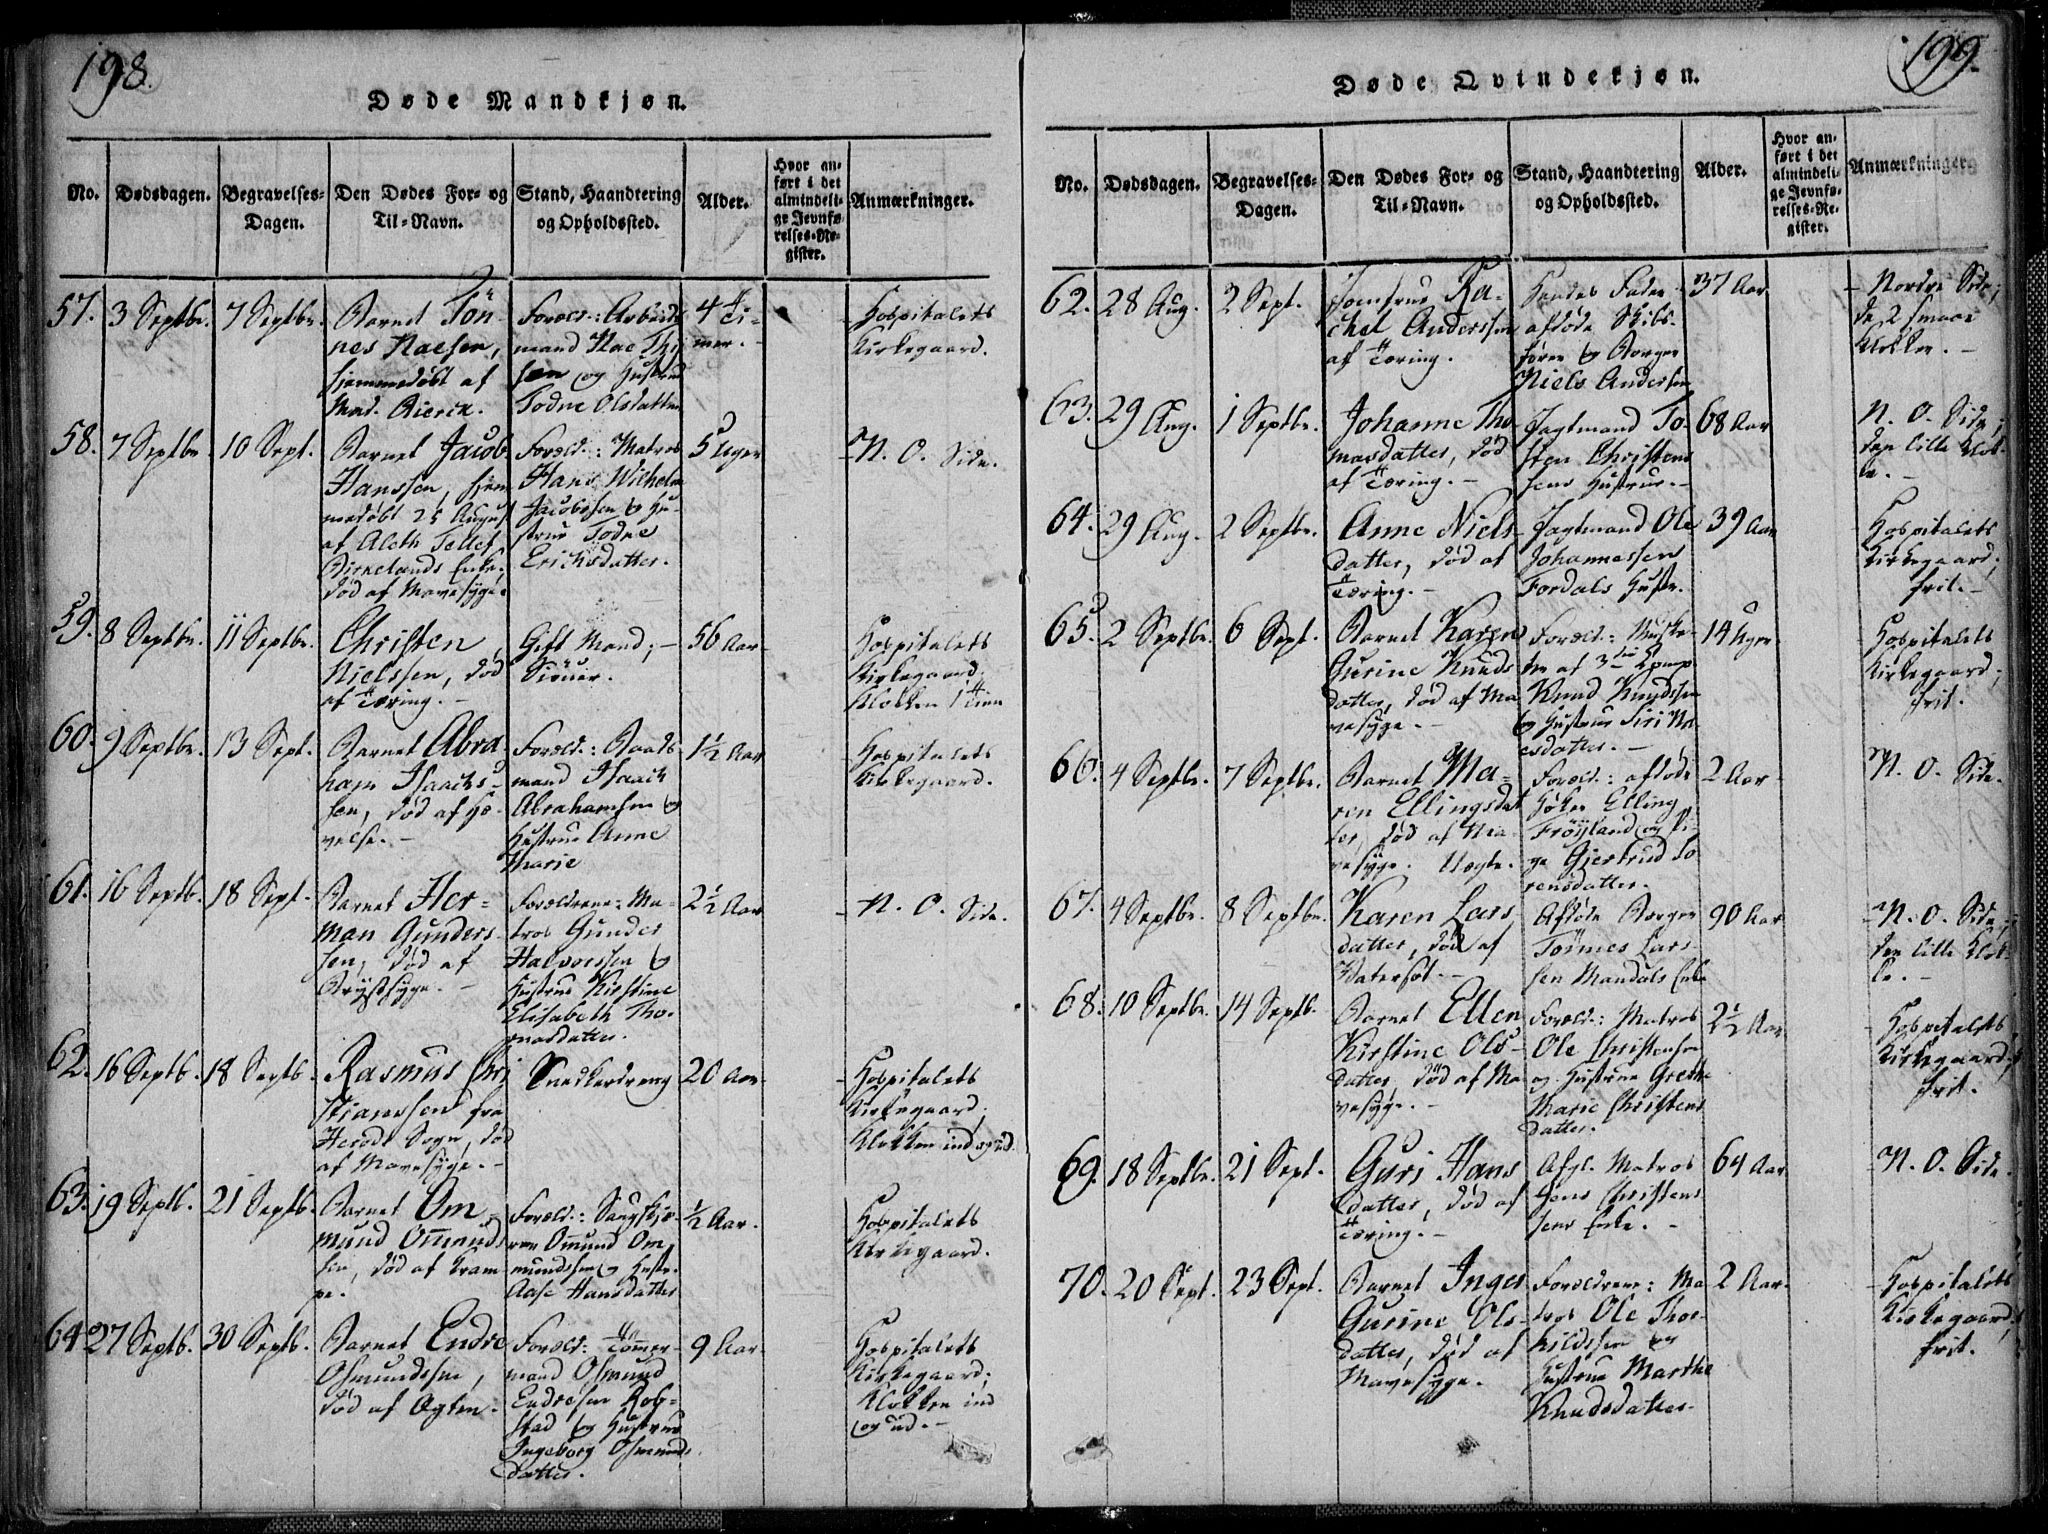 198.
Døde Mandkjøn.
No.
Dødsdagen.
Begravelses-
Dagen.
Den Dødes For- og
Til-Navn.
Stand, Haandtering
og Opholdssted.
Alder.
Hvor an-
ført i det
almindeli-
ge Jevnfø-
relses-Re-
gister.
Anmærkninger.
57.
3 Septbr.
7 Septbr.
Barnet Tön-
nes
hjemmedøbt af
Mad.
Foræld.: Arbeids
mand
sen og Hustrue
Todne Olsdatter
4 Ti-
mer.
Hospitalets
Kirkegaard.
58.
7 Septbr
10 Sept.
Barnet Jacob
Hanssen, hjem
medøbt 25 August
af Aleth Tellef
Birkelands Enke,
død af Mavesyge.
Foræld.: Matros
Hans Wilhelm
Jacobssen & Hu-
strue Todne
Ericksdatter.
5 Uger
N. O. Side.
59.
8 Septbr.
11 Septbr.
Christen
Nielssen, død
af Tæring.
Gift Mand;
56 Aar
Hospitalets
Kirkegaard;
Klokken 1 Time
60.
9 Septbr.
13 Sept.
Barnet Abra-
ham Isaachs-
sen, død af Hæ-
velse.
Foræld.: Baads-
mand Isaach
Abrahamsen &
Hustrue Anne
Marie
1½ Aar
Hospitalets
Kirkegaard.
61.
16 Septb.
18 Sept.
Barnet Her-
man Gunders-
sen, død af
Brystsyge.
Forældrene: Ma-
tros Gunder
Halvorssen &
Hustrue Kirstine
Elisabeth Tho-
masdatter.
2½ Aar
N. O. Side.
62.
16 Septb.
18 Septb.
Rasmus Chri
stianssen fra
Herods Sogn, død
af Mavesyge.
Snedkerdreng
20 Aar
Hospitalets
Kirkegaard;
Klokken ind og ud.
63.
19 Septb.
21 Septb.
Barnet Om-
mund Om̅unds
sen, død af Kram-
pe.
Foræld.:
Om̅und Om
mundssen & Hustr.
Aase Hansdatter
½ Aar.
Hospitalets
Kirkegaard.
64
27 Septb.
30 Septb.
Barnet Endre
Osmundssen,
død af
Foræld: Tøm̅er-
mand Osmund
Endresen Rob-
stad & Hustrue
Ingeborg Osmunds
datter.
9 Aar.
Hospitalets
Kirkegaard;
Klokken ind
og ud.
199.
Døde Qvindekjøn.
No.
Dødsdagen.
Begravelses-
Dagen.
Den Dødes For- og
Til-Navn.
Stand, Haandtering
og Opholdssted.
Alder.
Hvor an-
ført i det
almindeli-
ge Jevnfø-
relses-Re-
gister.
Anmærkninger
62.
28 Aug.
2 Sept.
Jomfrue Ra-
chel Anderssen
af Tæring.
Hendes Fader
afdøde Skibs-
fører & Borger
Niels Andersen
37 Aar
Nordre Side;
de 2 smaae
Klokker.
63.
29 Aug.
1 Septbr.
Johanne Tho-
masdatter, død
af Tæring.
Jagtmand To-
sten Christens
sens Hustrue.
68 Aar
N. O. Side;
den lille Klok-
ke.
64.
29 Aug.
2 Septbr.
Anne Niels-
datter, død af
Tæring.
Jagtmand Ole
Johannessen
Fordals Hustr.
39 Aar
Hospitalets
Kirkegaard;
frit.
65.
2 Septbr.
6 Sept.
Barnet Karen
Gurine Knuds
datter, død af Ma
vesyge.
Foræld: Muske-
teer af 3die Komp
Knud Knudssen
& Hustrue Siri Aa
esdatter.
14 Uger
Hospitalets
Kirkegaard;
frit.
66.
4 Septbr.
7 Septbr.
Barnet Ma-
ren Ellingsdat
ter, død af Ma-
vesyge. Uægte.
Foræld: afdøde
Høker Elling
Fröyland og Pi-
ge Gjertrud So
rensdatter.
2 Aar
N. O. Side.
67.
4 Septbr.
8 Septbr.
Karen Lars
datter, død af
Vatersot.
Afdøde Borger
Tönnes Lars-
sen Mandals Enke
90 Aar
N. O. Side,
den lille Klok-
ke.
68.
10 Septbr.
14 Septb.
Barnet Ellen
Kirstine Ols-
datter, død af Ma
vesyge.
Foræld: Matros
Ole Christensen
og Hustrue Grethe
Marie Christens
datter.
2½ Aar
Hospitalets
Kirkegaard;
frit.
69.
18 Septbr.
21 Sept.
Guri Hans
datter, død af
Tæring.
Afgl. Matros
Jens Christens
sens Enke.
64 Aar
N. O. Side.
70.
20 Sept.
23 Sept.
Barnet Inger
Gurine Ols-
datter, død af
Mavesyge.
Forældrene: Ma
tros Ole Thor-
kildssen og
Hustrue Marthe
Knudsdatter
2 Aar.
Hospitalets
Kirkegaard,
frit.